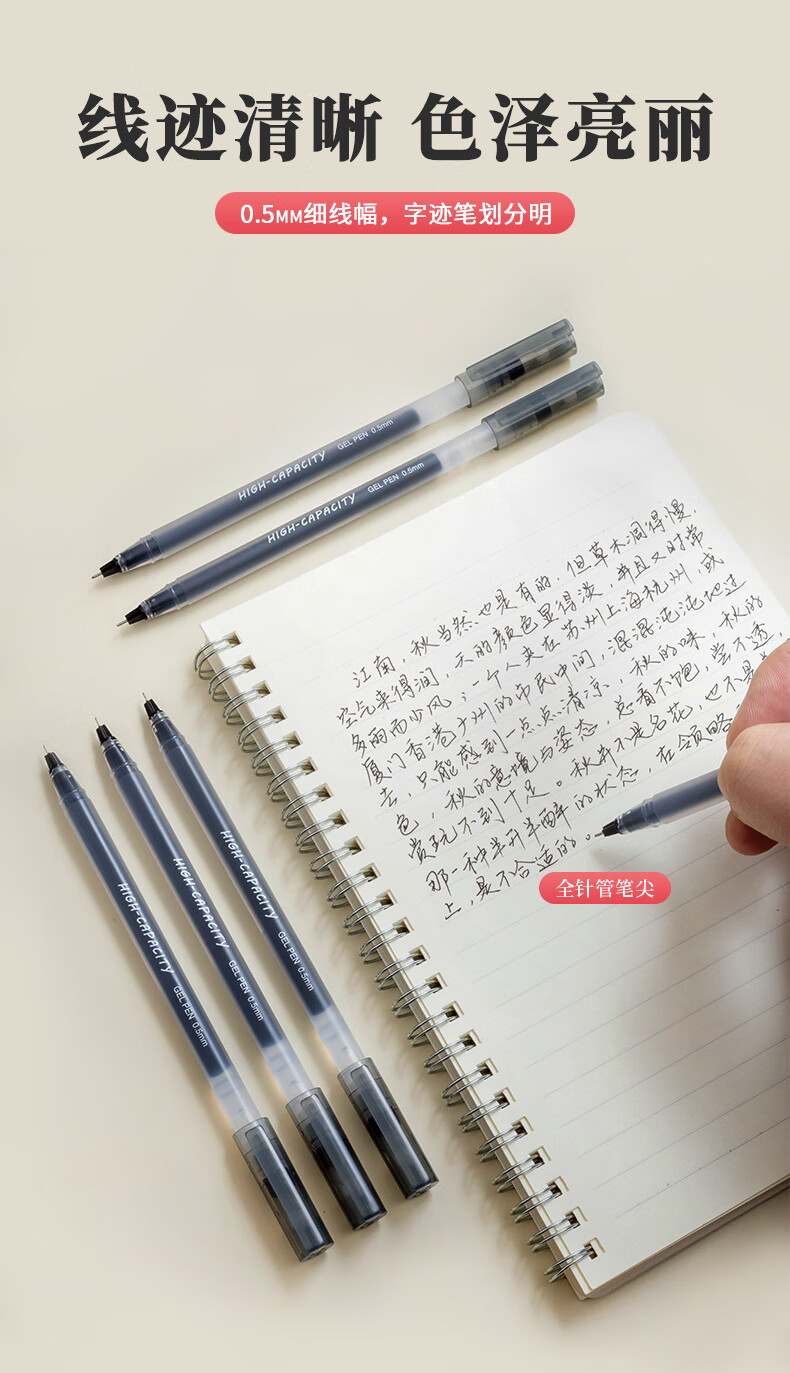 线迹清晰 色泽亮丽
0.5MM细线幅，字迹笔划分明
HIGH-CAPACITY GEL PEN 0.5mm
HIGH-CAPACITY GEL PEN 0.5mm
江南，秋当然也是有的，但草木凋得慢，
空气来得润，天的颜色显得淡，并且又时常
多雨而少风；一个人夹在苏州上海杭州，或
厦门香港广州的市民中间，混混沌沌地过
去，只能感到一点点清凉，秋的味，秋的
色，秋的意境与姿态，总看不饱，尝不透，
赏玩不到十足。秋并不是名花，也不是
那一种半开半醉的状态，在领略
上，是不合适的。
全针管笔尖
HIGH-CAPACITY GEL PEN 0.5mm
HIGH-CAPACITY GEL PEN 0.5mm
HIGH-CAPACITY GEL PEN 0.5mm